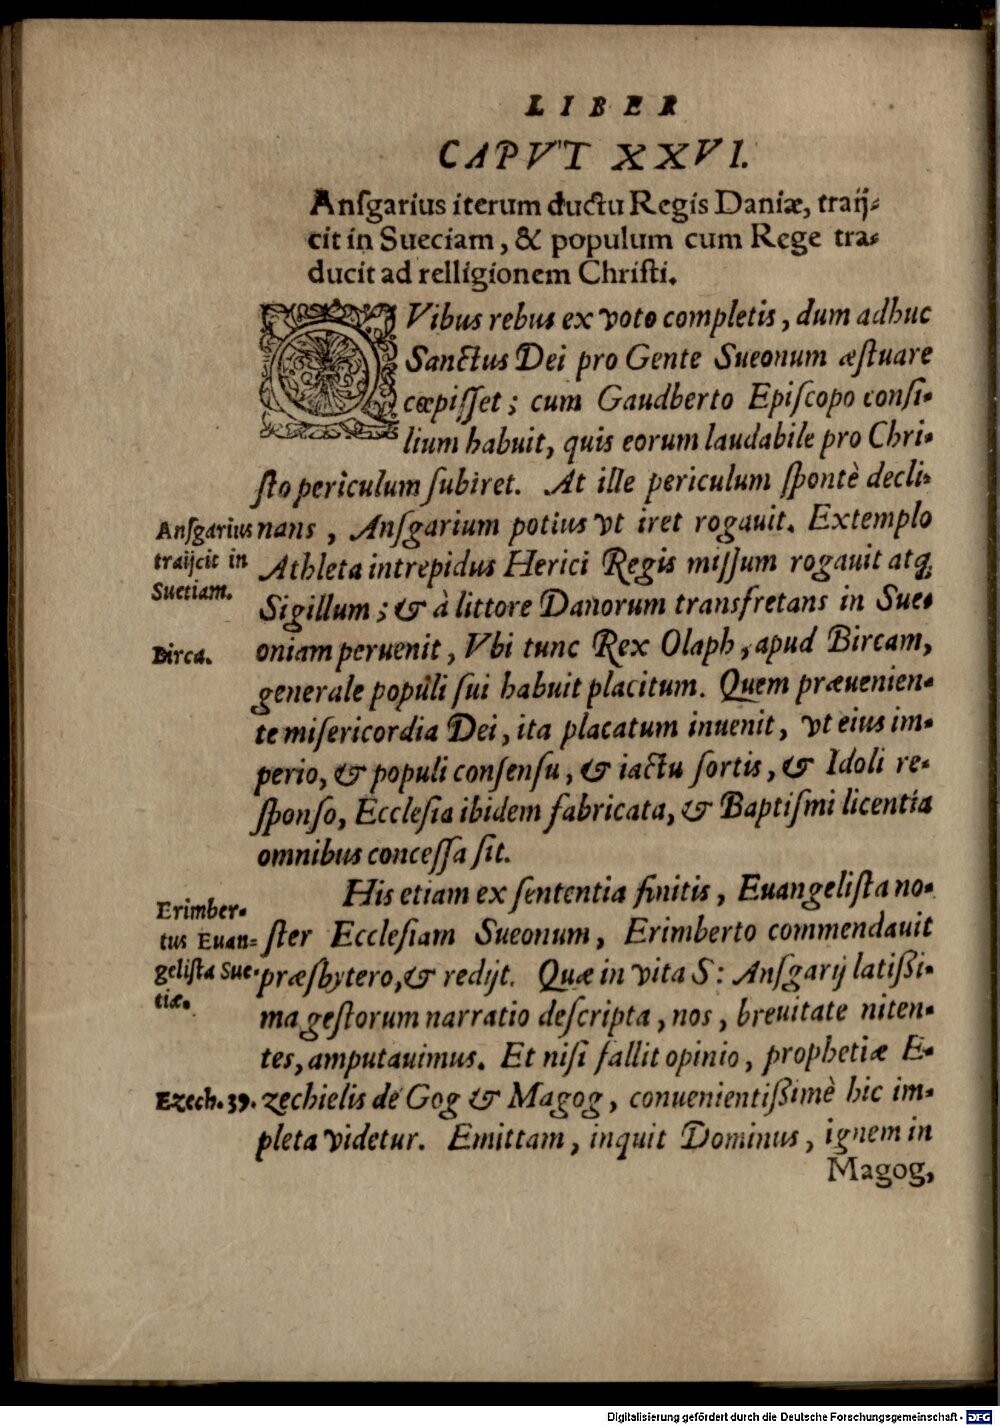 LIBER
CAPVT XXVI.
Anſgarius iterum ductu Regis Daniæ, traij-
cit in Sueciam, & populum cum Rege tra-
ducit ad relligionem Chriſti.
QVibus rebus ex voto completis, dum adhuc
Sanctus Dei pro Gente Sueonum æſtuare
cœpiſſet; cum Gaudberto Epiſcopo conſi-
lium habuit, quis eorum laudabile pro Chri-
ſto periculum ſubiret. At ille periculum ſpontè decli-
nans, Anſgarium potius vt iret rogauit. Extemplo
Anſgarius
traijcit in
Suetiam.
Athleta intrepidus Herici Regis miſſum rogauit atq;
Sigillum; & à littore Danorum transfretans in Sue-
oniam peruenit, Vbi tunc Rex Olaph, apud Bircam,
Birca.
generale populi ſui habuit placitum. Quem præuenien-
te miſericordia Dei, ita placatum inuenit, vt eius im-
perio, & populi conſenſu, & iactu ſortis, & Idoli re-
ſponſo, Eccleſia ibidem fabricata, & Baptiſmi licentia
omnibus conceſſa ſit.
His etiam ex ſententia finitis, Euangeliſta no-
Erimber-
tus Euan-
geliſta Sue-
tiæ.
ſter Eccleſiam Sueonum, Erimberto commendauit
præſbytero, & redijt. Quæ in vita S: Anſgarij latißi-
ma geſtorum narratio deſcripta, nos, breuitate niten-
tes, amputauimus. Et niſi fallit opinio, prophetiæ E-
Ezech. 39.
zechielis de Gog & Magog, conuenientißimè hic im-
pleta videtur. Emittam, inquit Dominus, ignem in
Magog,
Digitalisierung gefördert durch die Deutsche Forschungsgemeinschaft - DFG